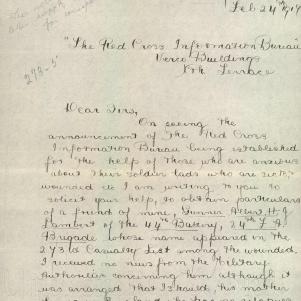 Feb 24th
"The Red Cross Information Bureau"
Verco Buildings
Nth Terrace
273-5
Dear Sirs,
On seeing the
announcement of the Red Cross
Information Bureau being established
for the help of those who are anxious
about their soldier lads who are sick,
wounded etc I am writing to you to
solicit your help, to obtain particulars
of a friend of mine, Gunner Albert H J
Lambert of the 44th Battery,
Brigade whose name appeared in the
273rd Casualty List among the wounded.
I received no news from the Military
Authorities concerning him although it
was arranged that I should, his mother